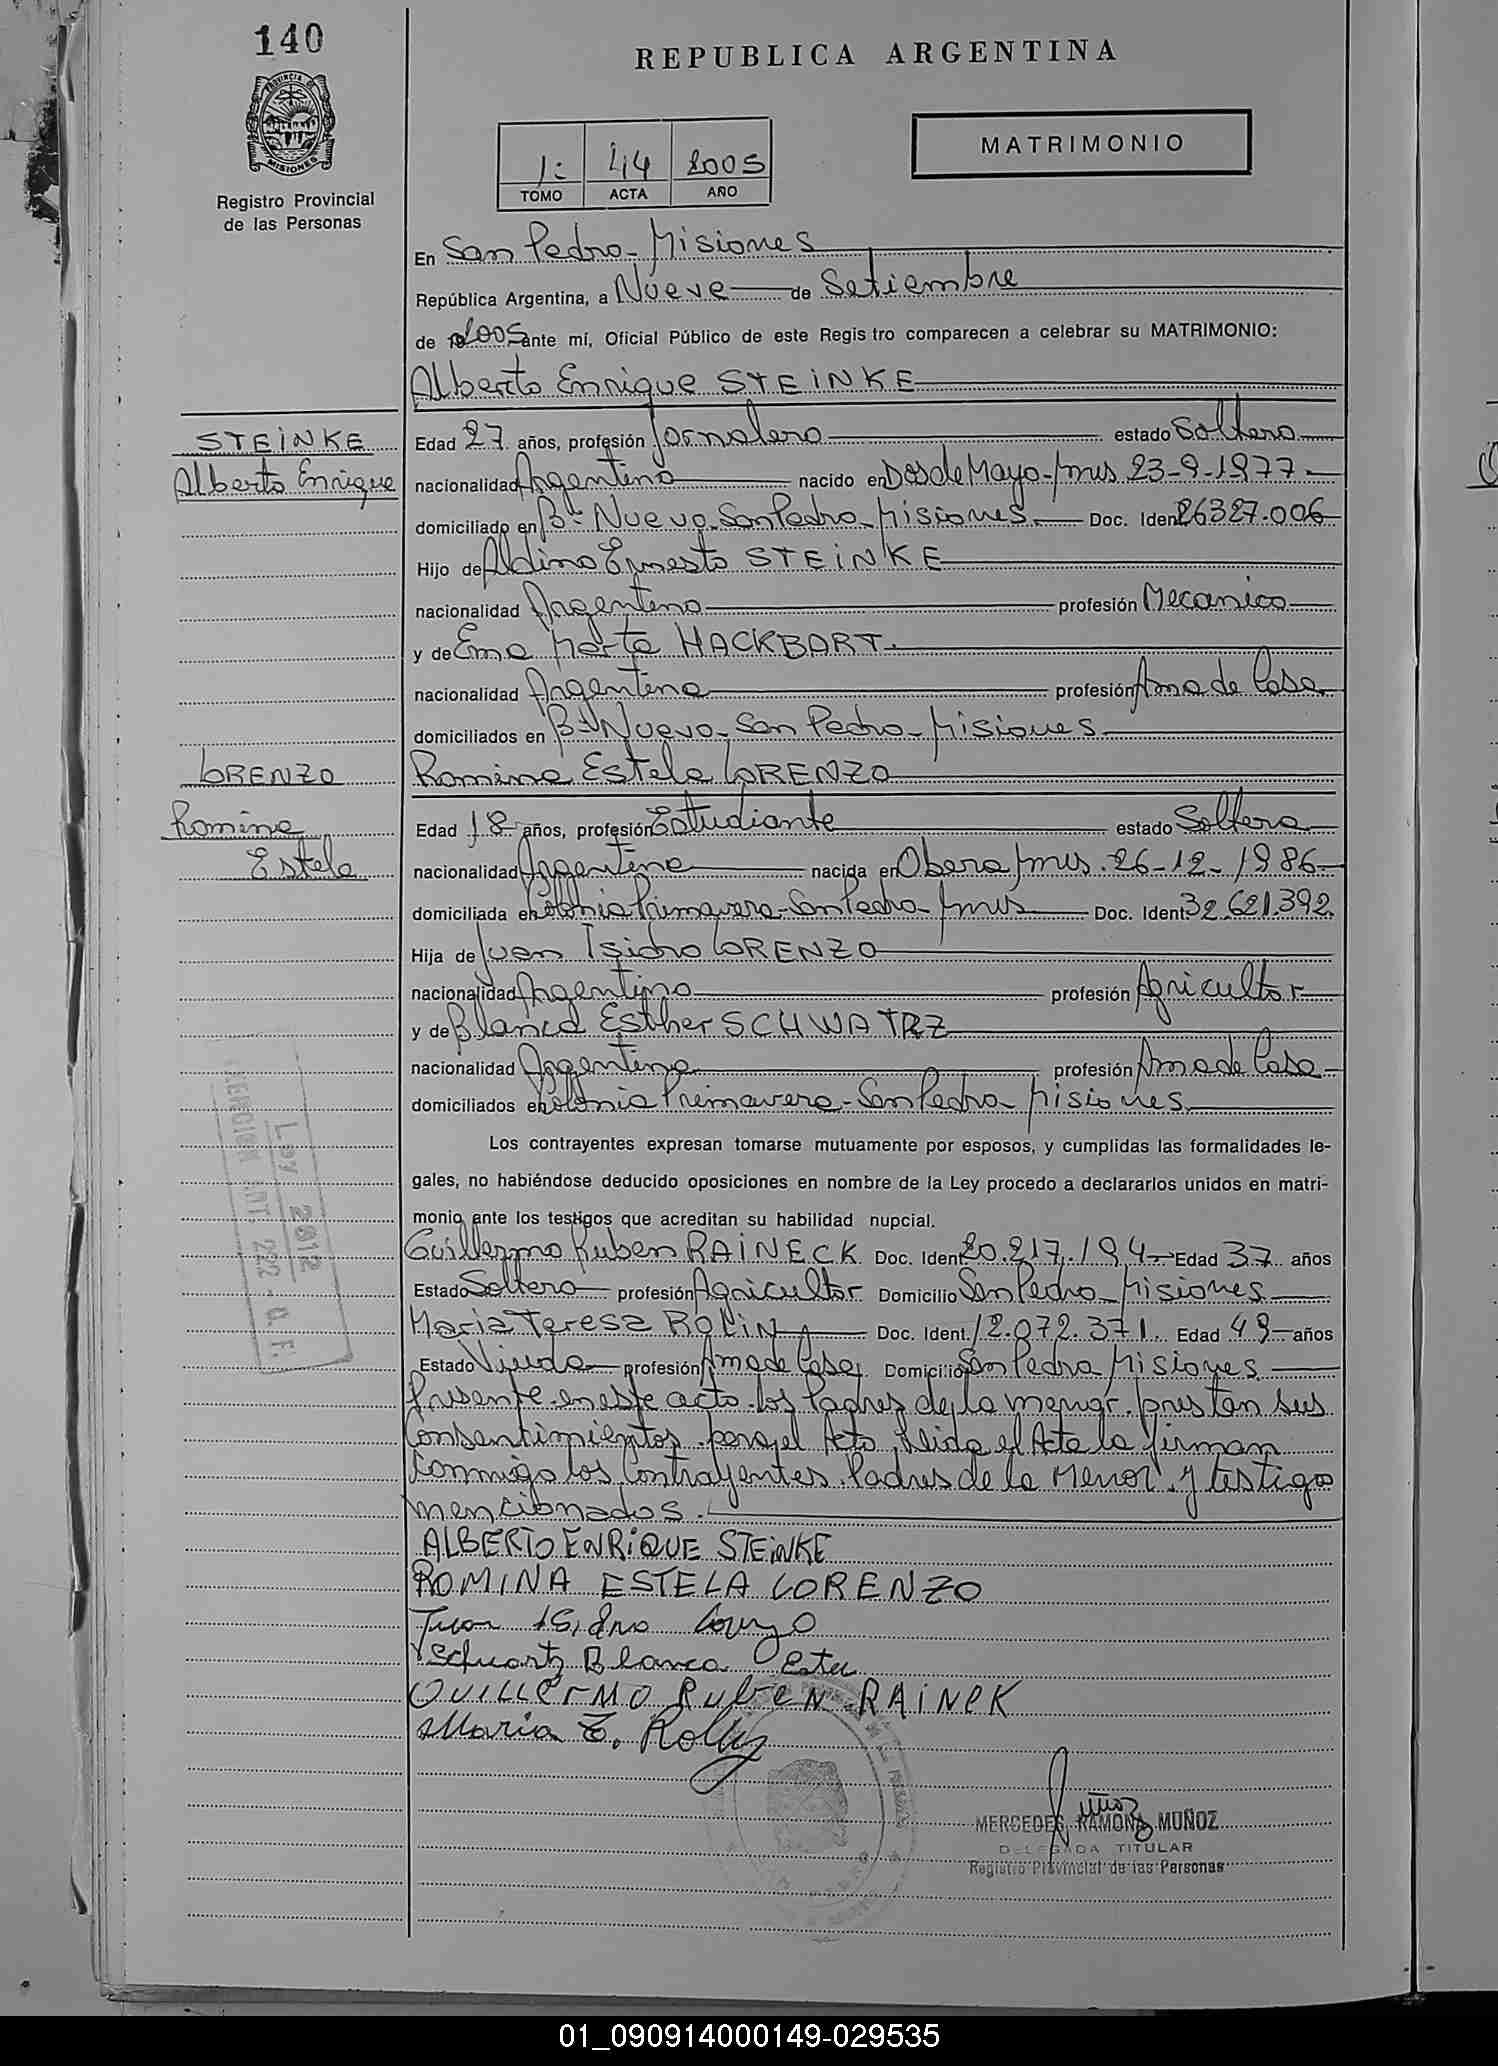 140
PROVINCIA DE MISIONES
Registro Provincial
de las Personas
REPUBLICA ARGENTINA
1: 44 2005
TOMO ACTA AÑO
MATRIMONIO
En San Pedro - Misiones
República Argentina, a Nueve de Setiembre
de 2005 ante mí, Oficial Público de este Regis tro comparecen a celebrar su MATRIMONIO:
Alberto Enrique STEINKE
STEINKE
Alberto Enrique
Edad 27 años, profesión Jornalero estado Soltero
nacionalidad Argentino nacido en Dos de Mayo - Mnes 23-9-1977
domiciliado en Bº Nuevo - San Pedro - Misiones. Doc. Iden 26327.006
Hijo de Aldino Ernesto STEINKE
nacionalidad Argentino profesión Mecanico
y de Ema Marta HACKBART.
nacionalidad Argentina profesión Ama de Casa
domiciliados en Bº Nuevo - San Pedro - Misiones
LORENZO
Romina
Estela
Romina Estela LORENZO
Edad 18 años, profesión Estudiante estado Soltera
nacionalidad Argentina nacida en Obera Mnes. 26-12-1986
domiciliada en Colonia Primavera - San Pedro - Mnes Doc. Ident. 32.621.392
Hija de Juan Isidro LORENZO
nacionalidad Argentino profesión Agricultor
y de Blanca Esther SCHWATRZ
nacionalidad Argentina profesión Ama de Casa
domiciliados en Colonia Primavera - San Pedro - Misiones
Los contrayentes expresan tomarse mutuamente por esposos, y cumplidas las formalidades le-
gales, no habiéndose deducido oposiciones en nombre de la Ley procedo a declararlos unidos en matri-
monio ante los testigos que acreditan su habilidad nupcial.
Guillermo Ruben RAINECK Doc. Ident. 20.217.194 Edad 37 años
Estado Soltero profesión Agricultor Domicilio San Pedro - Misiones
Maria Teresa ROLIN Doc. Ident. 12.072.371 Edad 49 años
Estado Viuda profesión Ama de Casa. Domicilio San Pedro Misiones
Presente en este acto los Padres de la menor prestan sus
Consentimientos para el Acto, leida el Acta la firman
Conmigo los Contrayentes, Padres de la Menor y testigos
mencionados.
Ley 2812
INT. 222 - G. F.
ALBERTO ENRIQUE STEINKE
ROMINA ESTELA LORENZO
Juan Isidro
Schuartz Blanca Ester
GUILLERMO RubeN RAINeK
Maria T.
MERCEDES RAMONA MUÑOZ
DELEGADA TITULAR
Registro Provincial de las Personas
01_090914000149-029535